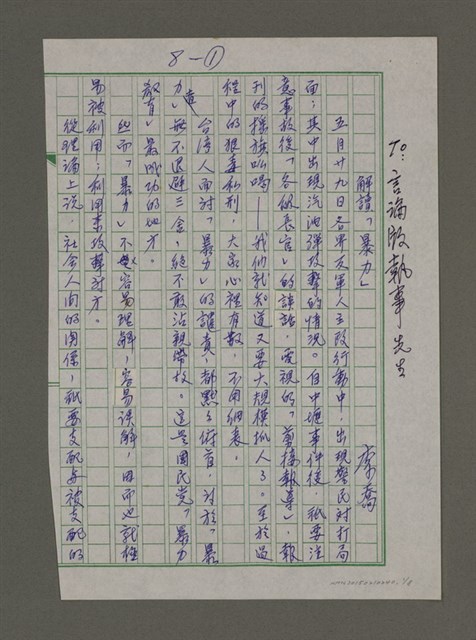 8-①
To: 言論版執事先生
解讀「暴力」
李喬
五月廿九日各界反軍人主政行動中,出現警民對打局
面;其中出現汽油彈攻擊的情況。自中壢事件後,祇要注
意事故後「各級長官」的談話,電視的「剪接報導」,報
刊的搖旗吶喊——我們就知道又要大規模抓人了。至於過
程中的狠毒私刑,大家心裡有數,不用細表。
台灣人面對「暴力」的譴責,都默默俯首,對於「暴
力」無不退避三舍,絕不敢沾親帶故。這是國民黨「暴力
教育」最成功的地方。
然而「暴力」不是容易理解,容易誤解,因而也就極
易被利用;利用來攻擊對方。
從理論上說,社會人間的關係,祇要支配與被支配的